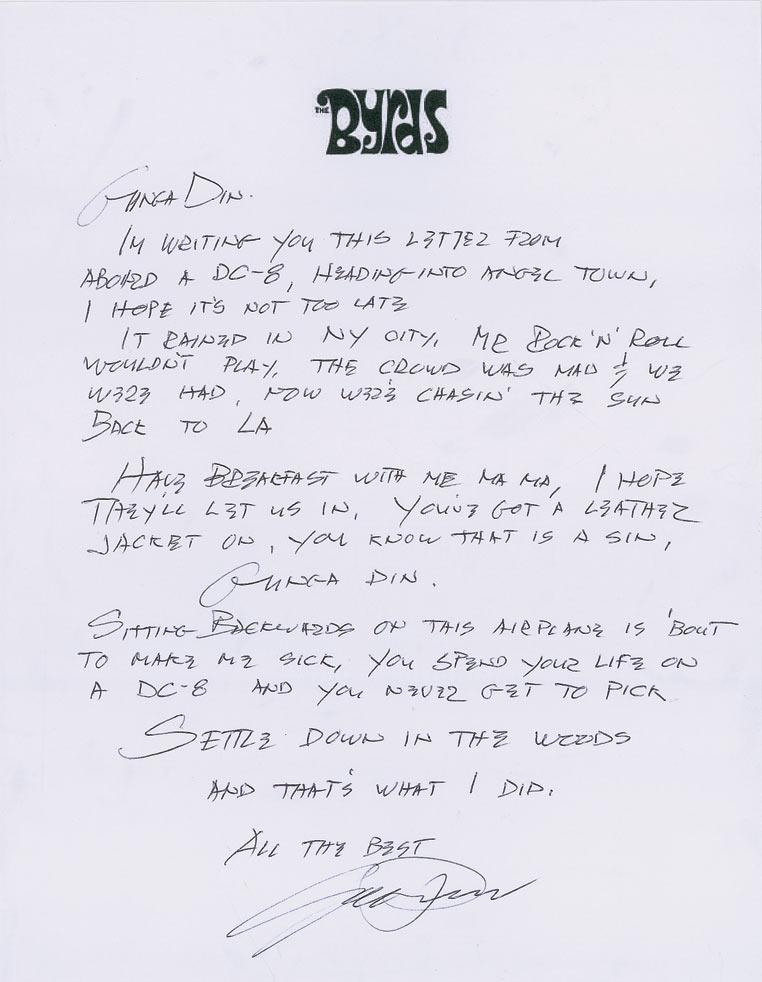 THE Byrds
GUNGA DIN.
IM WRITING YOU THIS LETTER FROM
ABOARD A DC-8, HEADING INTO ANGEL TOWN,
I HOPE IT'S NOT TOO LATE
IT RAINED IN NY CITY, MR ROCK 'N' ROLL
WOULDN'T PLAY, THE CROWD WAS MAD & WE
WERE HAD, NOW WE'RE CHASIN' THE SUN
BACK TO LA
HAVE BREAKFAST WITH ME MA MA, I HOPE
THEY'LL LET US IN, YOU'VE GOT A LEATHER
JACKET ON, YOU KNOW THAT IS A SIN,
GUNGA DIN.
SITTING BACKWARDS ON THIS AIRPLANE IS 'BOUT
TO MAKE ME SICK, YOU SPEND YOUR LIFE ON
A DC-8 AND YOU NEVER GET TO PICK
SETTLE DOWN IN THE WOODS
AND THAT'S WHAT I DID.
ALL THE BEST